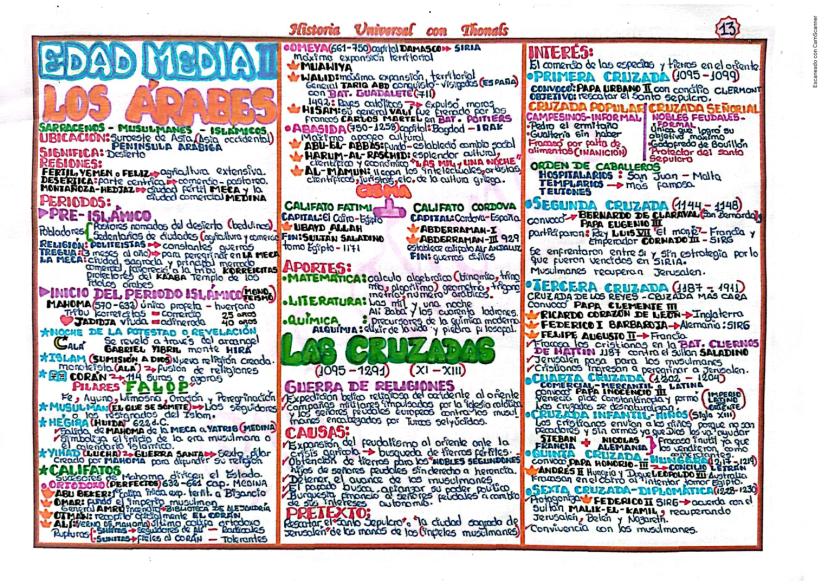 Historia Universal con Thonals
13
Escaneado con CamScanner
EDAD MEDIA II
LOS ÁRABES
SARRACENOS - MUSULMANES - ISLÁMICOS
UBICACIÓN: Suroeste de Asia (Asia occidental)
PENÍNSULA ARÁBIGA
SIGNIFICA: Desierto
REGIONES:
FERTIL YEMEN o FELIZ → agricultura extensiva.
DESÉRTICA: parte céntrica → comercio - pastoreo.
MONTAÑOZA-HEDJAZ → ciudad fértil MECA y la
ciudad comercial MEDINA
PERIODOS:
PRE-ISLÁMICO
Pobladores Pastores nomadas del desierto (beduinos)
Sedentarios de ciudades (agricultura y comercio
RELIGIÓN: POLITEISTAS → constantes guerras
TREGUA: (3 meses al año) → para peregrinar en LA MECA
LA MECA: ciudad sagrada y principal mercado
comercial, pertenecía a la tribu KOREICHITAS
protectores del KAABA Templo de los
árabes
INICIO DEL PERIODO ISLÁMICO (MONOTEISMO)
MAHOMA (570-632) único profeta - huérfano
Tribu koreichitas = comercio 25 años
JADIDJA viuda = adinerada 40 años
NOCHE DE LA POTESTAD O REVELACIÓN
ALÁ Se reveló a través del arcángel
GABRIEL YIBRIL monte HIRA
ISLAM (SUMISIÓN A DIOS) Nueva religión creada.
monoteísta (ALÁ) → fusión de religiones
CORÁN → 114 suras o azoras
PILARES FALOP
Fe, Ayuno, Limosna, Oración y Peregrinación
MUSULMÁN (EL QUE SE SOMETE) → Los seguidores
del Islam.
HEGIRA (HUIDA) 622 d.C.
Salida de MAHOMA de LA MECA a YATRIB (MEDINA)
Simboliza el inicio de la era musulmana o
el calendario islámico.
YIHAD (LUCHA) → GUERRA SANTA → sexto pilar
Creado por MAHOMA para difundir su religión
CALIFATOS
Sucesores de Mahoma dirigen el Estado.
ORTODOXO (PERFECTOS) 632-661 cap. MEDINA
ABU BEKER:
OMAR: fundó el imperio musulmán
General AMRÚ incendió → BIBLIOTECA DE ALEJANDRÍA
OTMAN: recopiló oficialmente EL CORÁN
ALÍ: YERNO DE MAHOMA último califa ortodoxo
Rupturas: SHIITAS → seguidores de Alí — Radicales
SUNITAS → fieles al CORÁN — Tolerantes
OMEYA (661-750) capital DAMASCO → SIRIA
máxima expansión territorial
MUAWIYA
WALID: máxima expansión territorial
General TARIQ ABD conquistó - visigodos (ESPAÑA)
con BAT. GUADALETE (711)
1492: Reyes católicos → Expulsó moros
HISAM: su general VALI fue frenado por los
francos CARLOS MARTEL en BAT. POITIERS
ABASIDA (750-1258) capital: Bagdad - IRAK
Máximo apogeo cultural
ABU-EL-ABBAS: fundó - estableció cambio social
HARUM-AL-RASCHID: esplendor cultural
científico y económico "LAS MIL Y UNA NOCHE"
AL-MAMUN: llegaron los intelectuales, artistas,
científicos, juristas, etc. de la cultura griega.
CISMA
CALIFATO FATIMI
CAPITAL: El Cairo-Egipto
UBAYD ALLAH
FIN: SULTAN SALADINO
tomo Egipto - 1171
CALIFATO CORDOVA
CAPITAL: Cordova-España
ABDERRAMAN-I
ABDERRAMAN-III 929
estableció califato AL ANDALUZ
FIN: guerras civiles
APORTES:
MATEMÁTICA: cálculo algebraico (binomio, trino
mio, algoritmo) geometría, trigono
metría, números arábicos.
LITERATURA: Las mil y una noche
Ali Babá y los cuarenta ladrones.
QUÍMICA: Precursores de la química moderna
ALQUIMIA: elixir de la vida y piedra filosofal
LAS CRUZADAS
(1095-1291) (XI - XIII)
GUERRA DE RELIGIONES
Expedición bélico religiosa del occidente al oriente
Campañas militares impulsadas por la iglesia católica
Los señores feudales europeos contra los musul
manes encabezados por Turcos selyúcidas.
CAUSAS:
Expansión del feudalismo al oriente ante la
crisis agrícola → búsqueda de tierras fértiles.
Obtención de tierras para los NOBLES SEGUNDONES
Hijos de señores feudales sin derecho a herencia.
Detener el avance de los musulmanes
El papado busca extender su poder político
Burguesía financió al señores feudales a cambio
de sus intereses autonomía.
PRETEXTO:
Rescatar el "Santo Sepulcro" o "la ciudad sagrada de
Jerusalén de las manos de los (infieles musulmanes)
INTERÉS:
El comercio de las especias y tierras en el oriente.
PRIMERA CRUZADA (1095-1099)
CONVOCÓ: PAPA URBANO II con concilio CLERMONT
OBJETIVO: rescatar el Santo Sepulcro.
CRUZADA POPULAR
CAMPESINOS-INFORMAL
Pedro el ermitaño
Gualterio sin haber
Fracasó por falta de
alimentos (INANICIÓN)
CRUZADA SEÑORIAL
NOBLES FEUDALES-
FORMAL
Única que logró su
objetivo máximo
Godofredo de Bouillón
"Protector del santo
Sepulcro
ORDEN DE CABALLEROS
HOSPITALARIOS: San Juan - Malta
TEMPLARIOS → más famosa
TEUTONES
SEGUNDA CRUZADA (1144-1148)
convocó BERNARDO DE CLARAVAL (San Bernardo) y
PAPA EUGENIO III
participaron: Rey LUIS VII "El monje" - Francia y
Emperador CORNADO III - SIRG
Se enfrentaron entre si y sin estrategia por lo
que fueron vencidos en SIRIA.
Musulmanes recuperan Jerusalen.
TERCERA CRUZADA (1187-1941)
CRUZADA DE LOS REYES - CRUZADA MÁS CARA
Convocó PAPA CLEMENTE III
RICARDO CORAZÓN DE LEÓN → Inglaterra
FEDERICO I BARBAROJA → Alemania: SIRG
FELIPE AUGUSTO II → Francia
Fracasó los cristianos en la BAT. CUERNOS
DE HATTIN 1187 contra el sultan SALADINO
Jerusalén pasa para los musulmanes
Cristianos ingresan a peregrinar a Jerusalén.
CUARTA CRUZADA (1202-1204)
COMERCIAL-MERCANTIL & LATINA
Convocó PAPA INOCENCIO III
Venecia pide Constantinopla y formó IMPERIO LATINO ORIENTE
Las cruzadas se desnaturalizan
CRUZADA INFANTIL-NIÑOS (Siglo XIII)
Los cristianos envian a los niños porque no son
pecadores y sin armas (la ayuda de Dios)
STEBAN + NICOLÁS
FRANCIA ALEMANIA
Fracaso inútil ya que
se vendieron como
esclavos
QUINTA CRUZADA - HÚNGARA (1217-1219)
CONVOCÓ: PAPA HONORIO-III → CONCILIO LETRÁN
ANDRÉS II Hungría y Duque LEOPOLDO VI Austria
Fracasan en el Cairo al intentar tomar Egipto.
SEXTA CRUZADA-DIPLOMÁTICA (1228-1230)
Protagonista: FEDERICO II SIRG → acuerda con el
Sultan MALIK-EL-KAMIL, recuperando
Jerusalén, Belén y Nazareth.
Convivencia con los musulmanes.